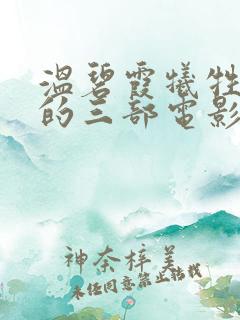 温碧霞犧牲
的三部电影
神奈梓美
未经同意禁止转载